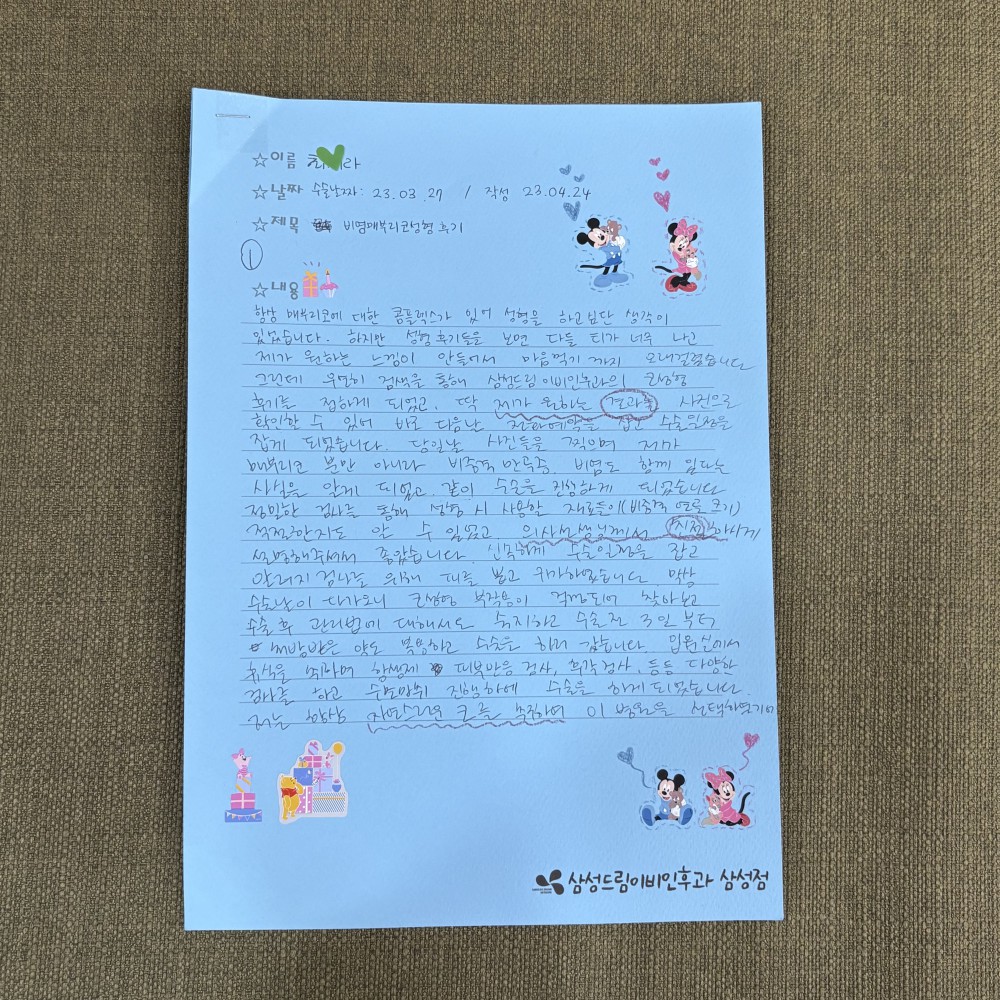 ☆이름 최 라
☆날짜 수술날짜: 23.03.27 / 작성 23.04.24
☆제목 비염매부리코성형후기
①
☆내용
항상 매부리코에 대한 콤플렉스가 있어 성형을 하고싶단 생각이
있었습니다. 하지만 성형후기들을 보면 다들 티가 너무 나고
제가 원하는 느낌이 안들어서 마음먹기까지 오래걸렸습니다
그런데 우연히 검색을 통해 삼성드림이비인후과의 코성형
후기를 접하게 되었고, 딱 제가 원하는 결과를 사진으로
확인할 수 있어 바로 다음날 전화예약을 잡고 수술일정을
잡게 되었습니다. 당일날 사진들을 찍으며 제가
매부리코 뿐만 아니라 비중격만곡증, 비염도 함께 있다는
사실을 알게 되었고, 같이 수술을 진행하게 되었습니다
정밀한 검사를 통해 성형 시 사용할 재료들이(비중격 연골 크기)
적절한지도 알 수 있었고, 의사선생님께서 친절하시게
설명해주셔서 좋았습니다. 신속하게 수술일정을 잡고
알러지검사를 위해 피를 뽑고 귀가하였습니다 막상
수술날이 다가오니 코성형 부작용이 걱정되어 찾아보고
수술 후 관리법에 대해서도 숙지하고 수술전 3일부터
처방받은 약도 복용하고 수술을 하러 갔습니다. 입원실에서
휴식을 취하며 항생제 피부반응 검사, 후각검사, 등등 다양한
검사를 하고 수면마취 진행하에 수술을 하게되었습니다.
저는 항상 자연스러운 코를 추구하여 이 병원을 선택하였기에
삼성드림이비인후과 삼성점